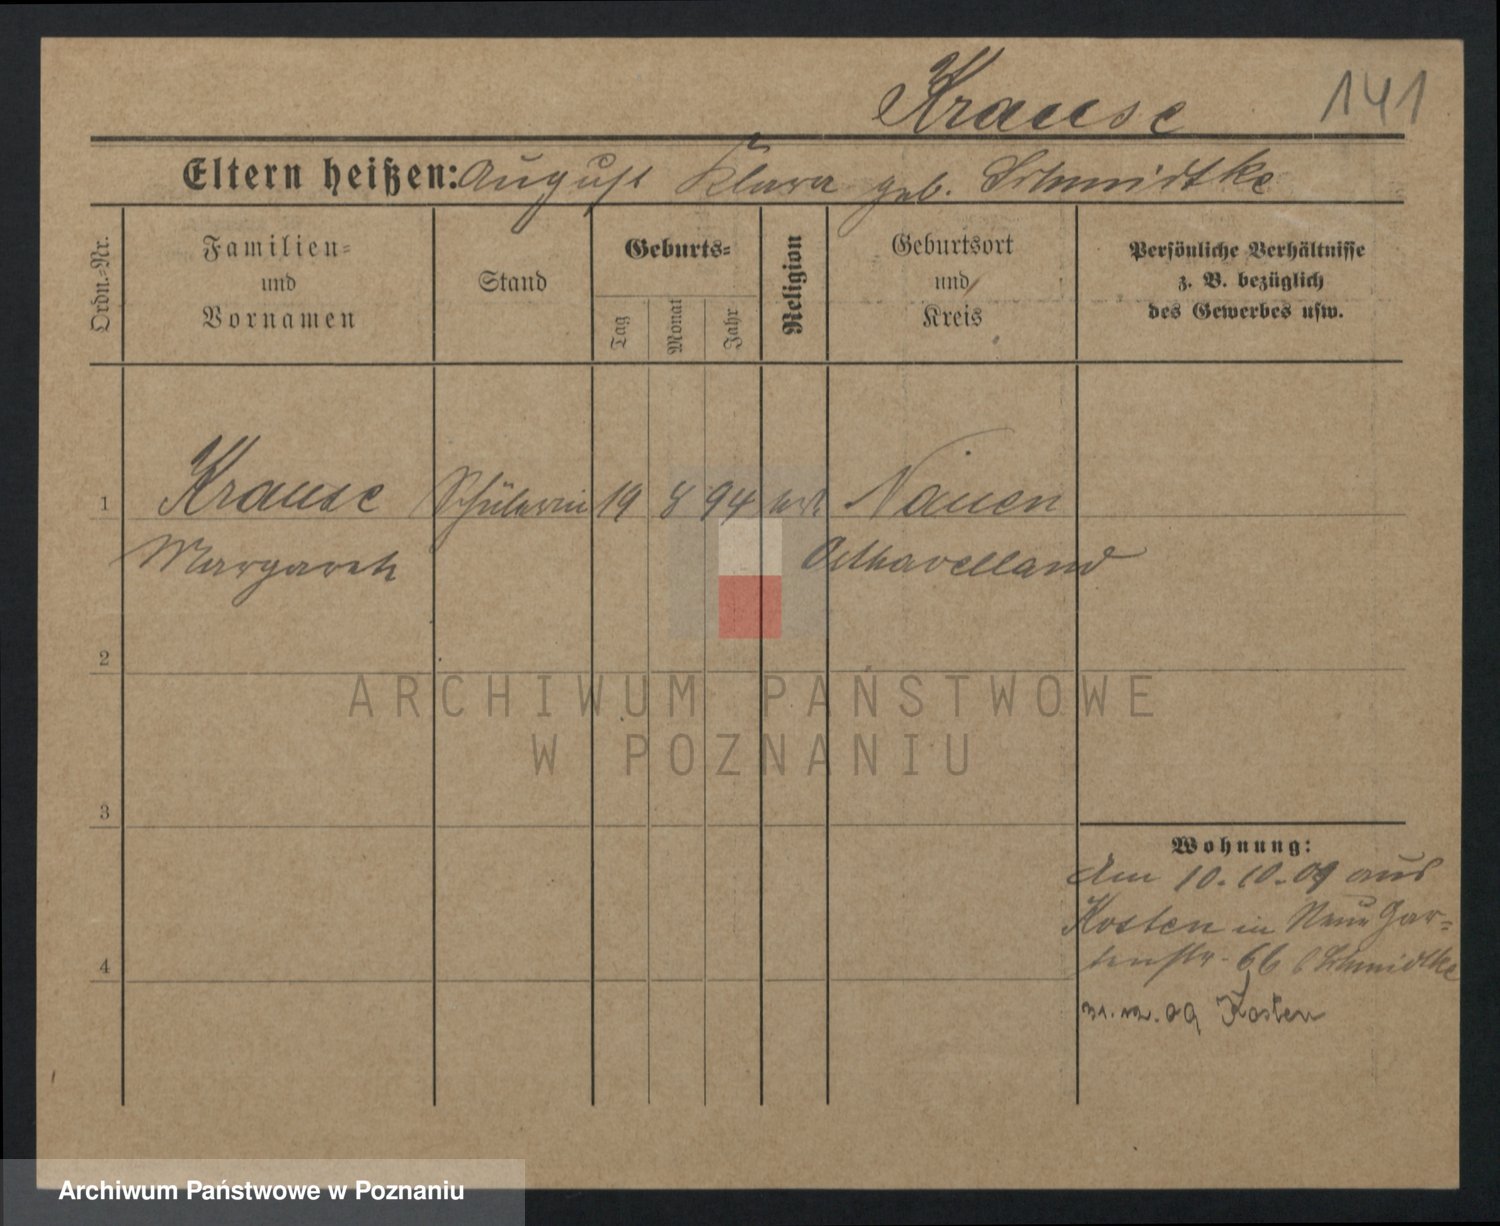 Krause 141
Eltern heißen: August Klara geb. Schmidtke
Ordn.-Nr.
Familien-
und
Vornamen
Stand
Geburts-
Tag
Monat
Jahr
Religion
Geburtsort
und
Kreis
Persönliche Verhältnisse
z. B. bezüglich
des Gewerbes usw.
1 Krause Schülerin 19 8 94 Nauen
Margareth Osthavelland
2
ARCHIWUM PAŃSTWOWE
W POZNANIU
3
Wohnung:
Am 10.10.09 aus
Kosten in Neue Gar-
tenstr. 66 b Schmidtke
4
31.12.09 Kosten
Archiwum Państwowe w Poznaniu